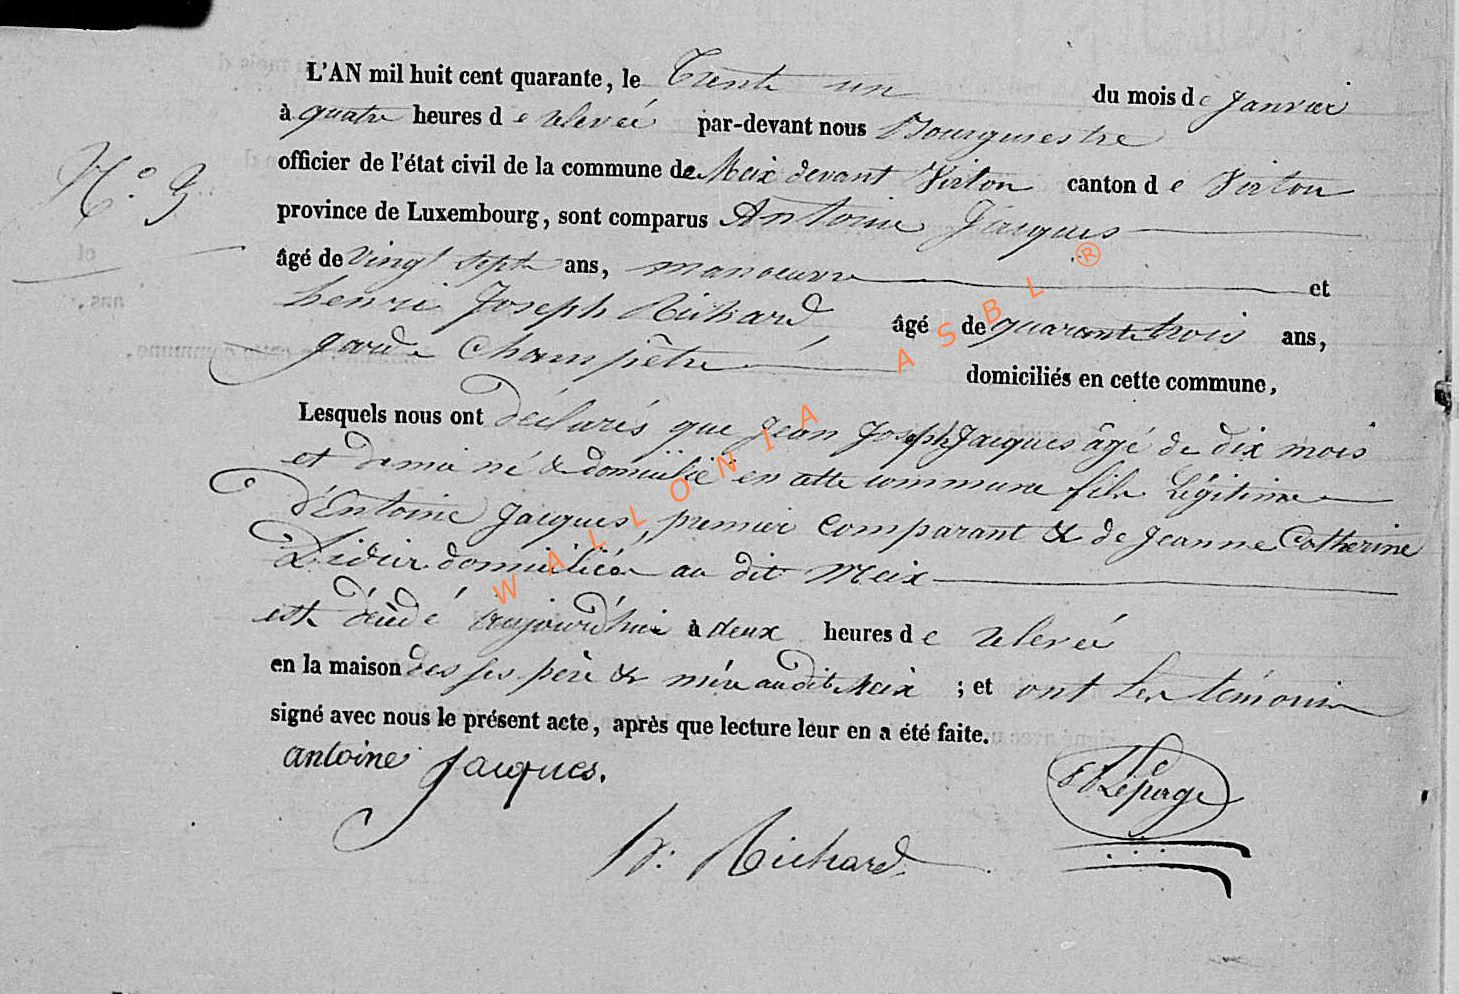 L'AN mil huit cent quarante, le Trente un du mois de Janvier
à quatre heures de relevée par-devant nous Bourgmestre
officier de l'état civil de la commune de Meix devant Virton canton de Virton
N.° 5
province de Luxembourg, sont comparus Antoine Jacques
âgé de vingt sept ans, manoeuvre et
henri Joseph Richard, âgé de quarante trois ans,
garde Champêtre domiciliés en cette commune,
Lesquels nous ont déclarés que Jean Joseph Jacques âgé de dix mois
et demi né & domicilié en cette commune fils Légitime
d'Entoine Jacques, premier Comparant & de Jeanne Catherine
Didier domiciliés au dit Meix
est décédé aujourd'hui à deux heures de relevée
en la maison des ses père & mère au dit Meix ; et ont les témoins
signé avec nous le présent acte, après que lecture leur en a été faite.
antoine Jacques.
Lepage
h: Richard
WALLONIA ASBL ®